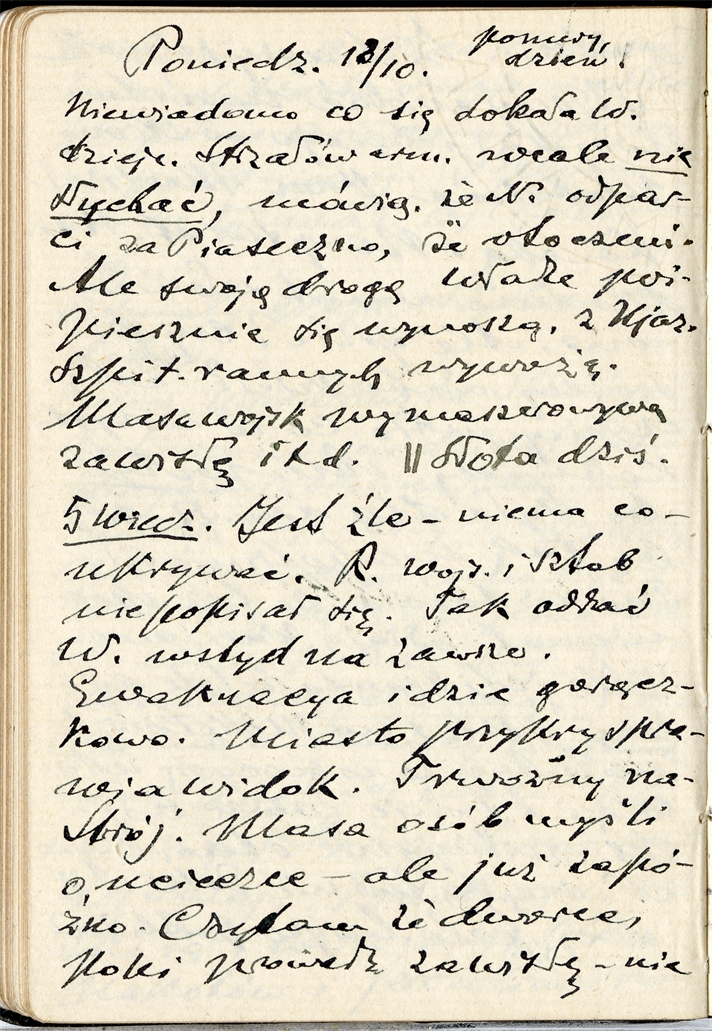 Poniedz. 12/10. ponury dzień!
Niewiadomo co się dokoła W.
dzieje. Strzałów arm. wcale nie
słychać, mówią, że N. odpar-
ci za Piaseczno, że otoczeni.
Ale swoją drogą władze poś-
piesznie się wynoszą. z Ujaz.
Szpit. rannych wywożą.
Masa wojsk wymaszerowywa
za Wisłę i t.d. || Słota dziś.
5 wiecz. Jest źle – niema co –
ukrywać. R. wojs. i sztab
nie popisał się. Tak oddać
W. wstyd na zawsze.
Ewakuacya idzie gorącz-
kowo. Miasto przykry spra-
wia widok. Trwożny na-
strój. Masa osób myśli
o ucieczce – ale już zapó-
źno. Czytam że dworce,
 prowadz. za Wisłę – nie